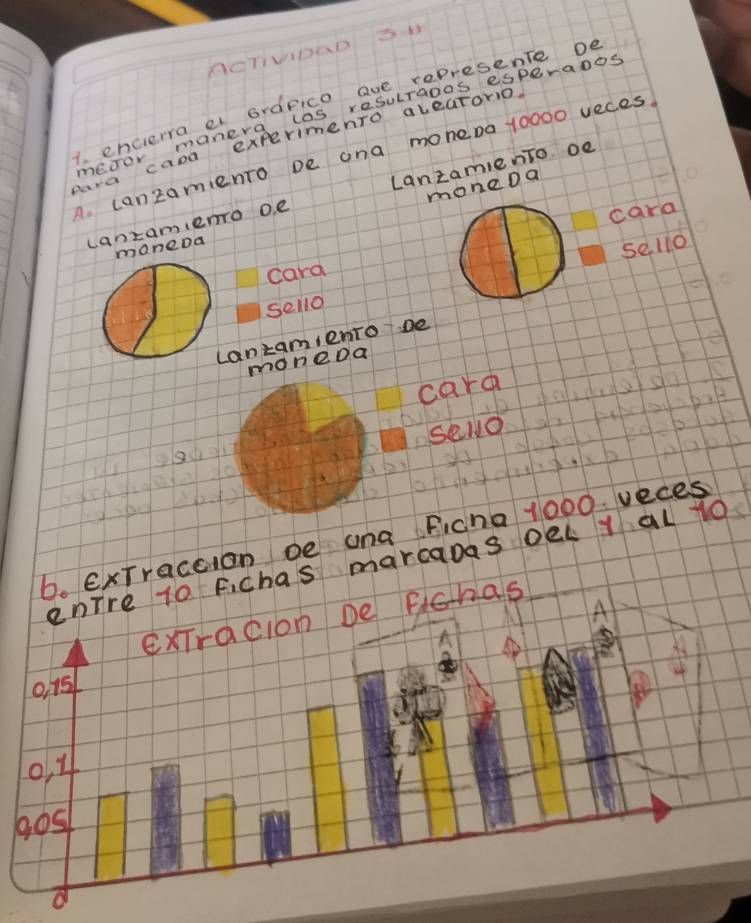 ACTIVIDAD 3
1. encierra el Gráfico que represente De
mejor manera las resultados esperados
para cada experimento aleatorio.
A. Lanzamiento De una moneda 10000 veces.
Lanzamiento De
moneda
cara
sello
Lanzamiento De
moneda
cara
sello
Lanzamiento De
moneda
cara
sello
b. Extraccion De una Ficha 1000 veces
entre 10 Fichas marcadas Del 1 al 10
Extracion De Fichas
0,15
0,1
0,05
0
A
A
A